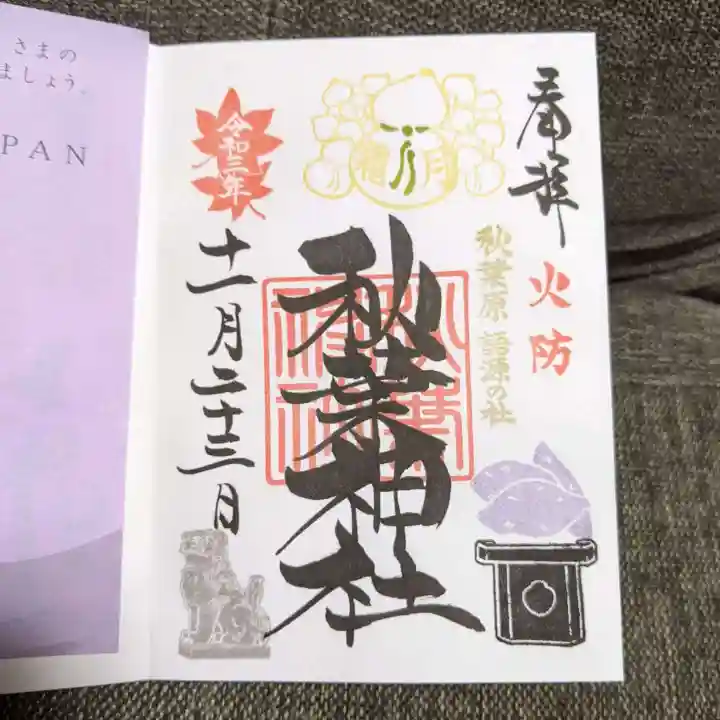 奉拝
火防
秋葉原 語源の社
秋葉神社
霜月
令和三年
十一月二十三日
さまの
ましょう。
PAN